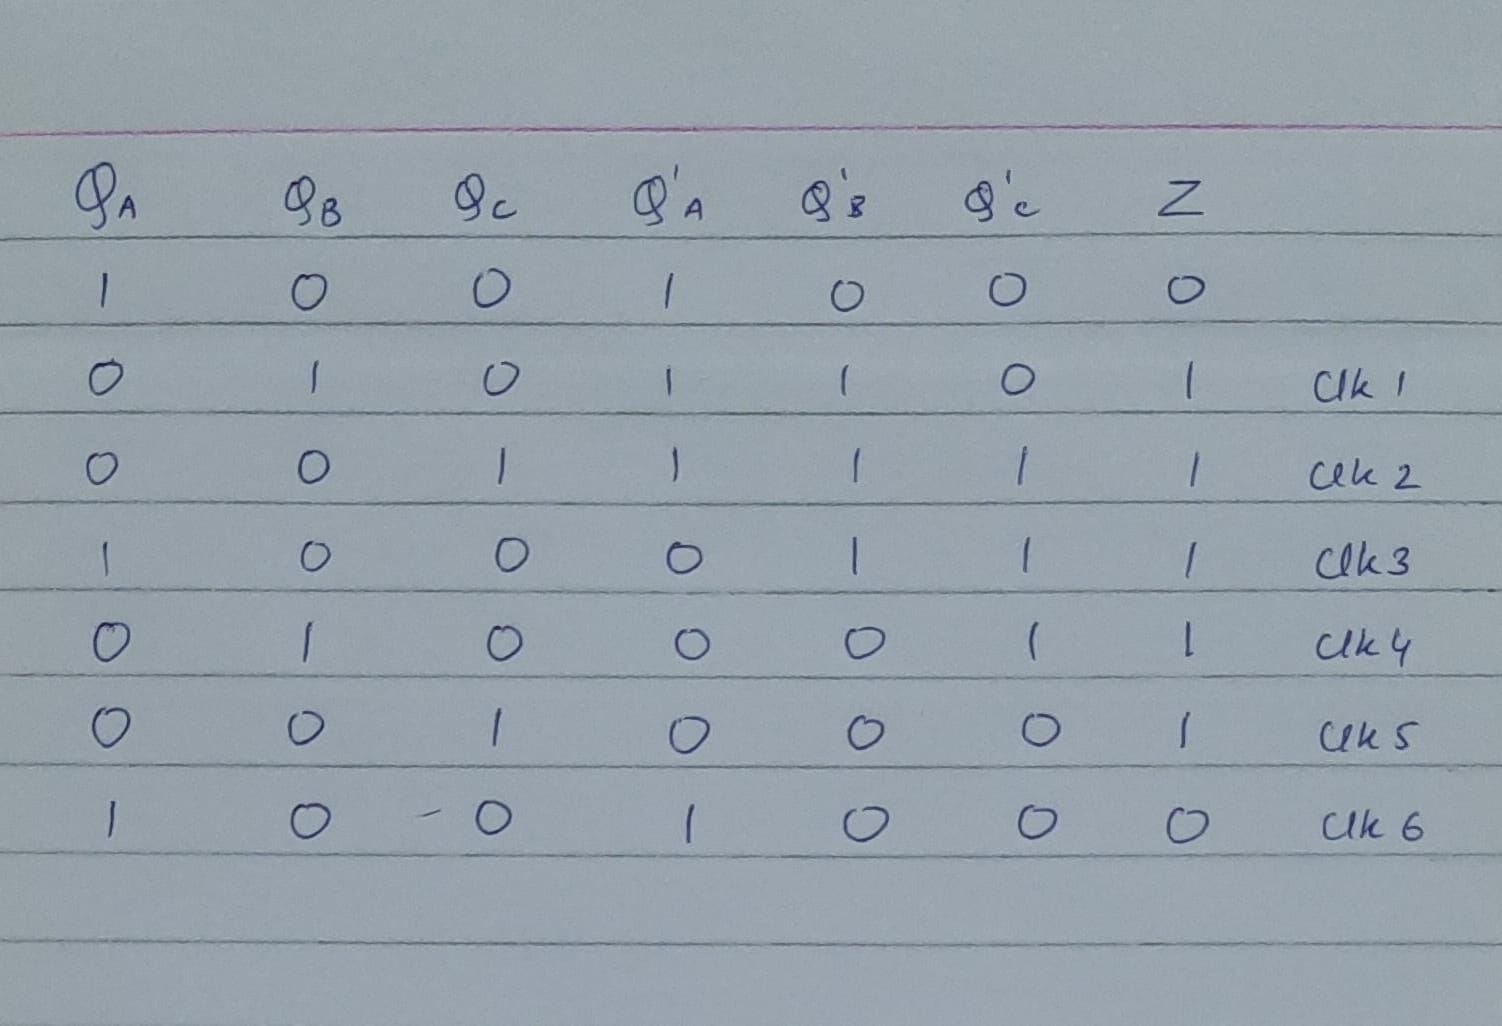 QA QB QC Q'A Q'B Q'C Z
1 0 0 1 0 0 0
0 1 0 1 1 0 1 Clk 1
0 0 1 1 1 1 1 Clk 2
1 0 0 0 1 1 1 Clk 3
0 1 0 0 0 1 1 Clk 4
0 0 1 0 0 0 1 Clk 5
1 0 - 0 1 0 0 0 Clk 6